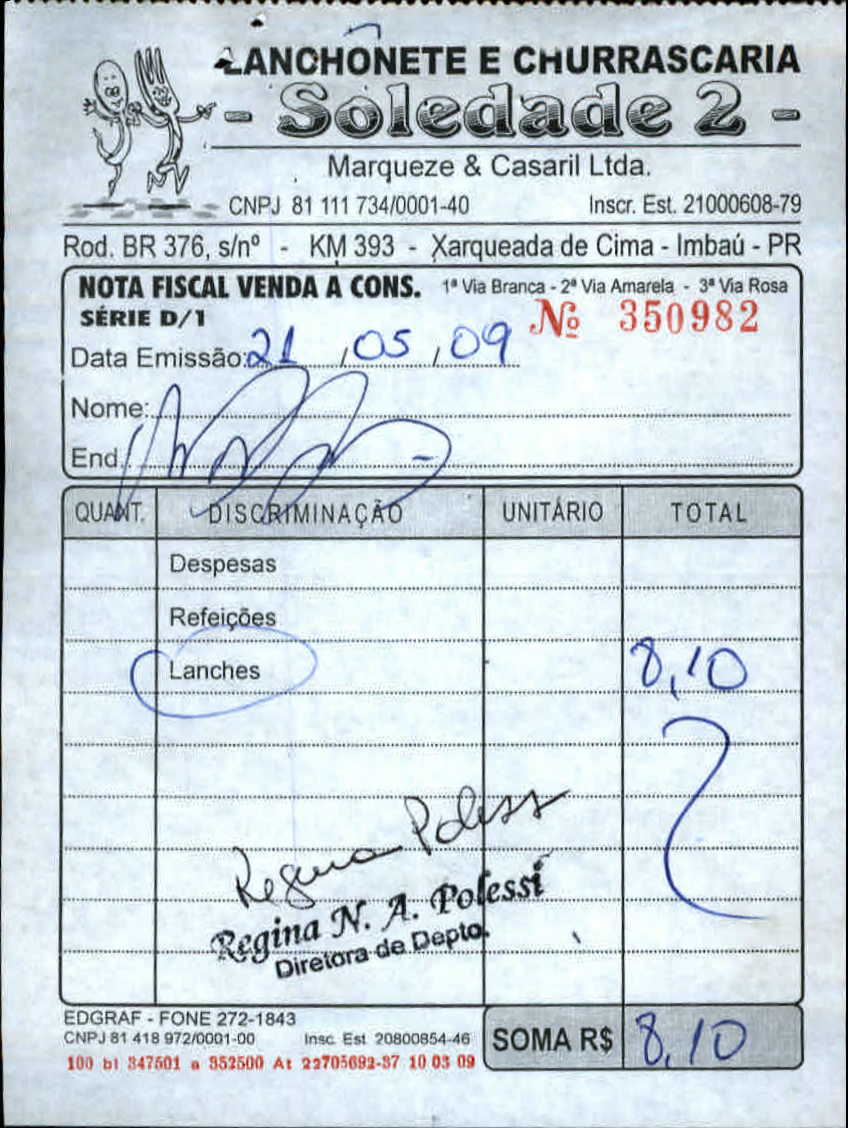 LANCHONETE E CHURRASCARIA
- Soledade 2 -
Marqueze & Casaril Ltda.
CNPJ 81 111 734/0001-40 Inscr. Est. 21000608-79
Rod. BR 376, s/nº - KM 393 - Xarqueada de Cima - Imbaú - PR
NOTA FISCAL VENDA A CONS. 1ª Via Branca - 2ª Via Amarela - 3ª Via Rosa
SÉRIE D/1 Nº 350982
Data Emissão: 21 / 05 / 09
Nome:
End.
QUANT. DISCRIMINAÇÃO UNITÁRIO TOTAL
Despesas
Refeições
Lanches 8,10
Regina Polessi
Regina N. A. Polessi
Diretora de Depto.
EDGRAF - FONE 272-1843
CNPJ 81 418 972/0001-00 Insc. Est 20800854-46
SOMA R$ 8,10
100 bl 347501 a 352500 At 22705692-37 10 03 09